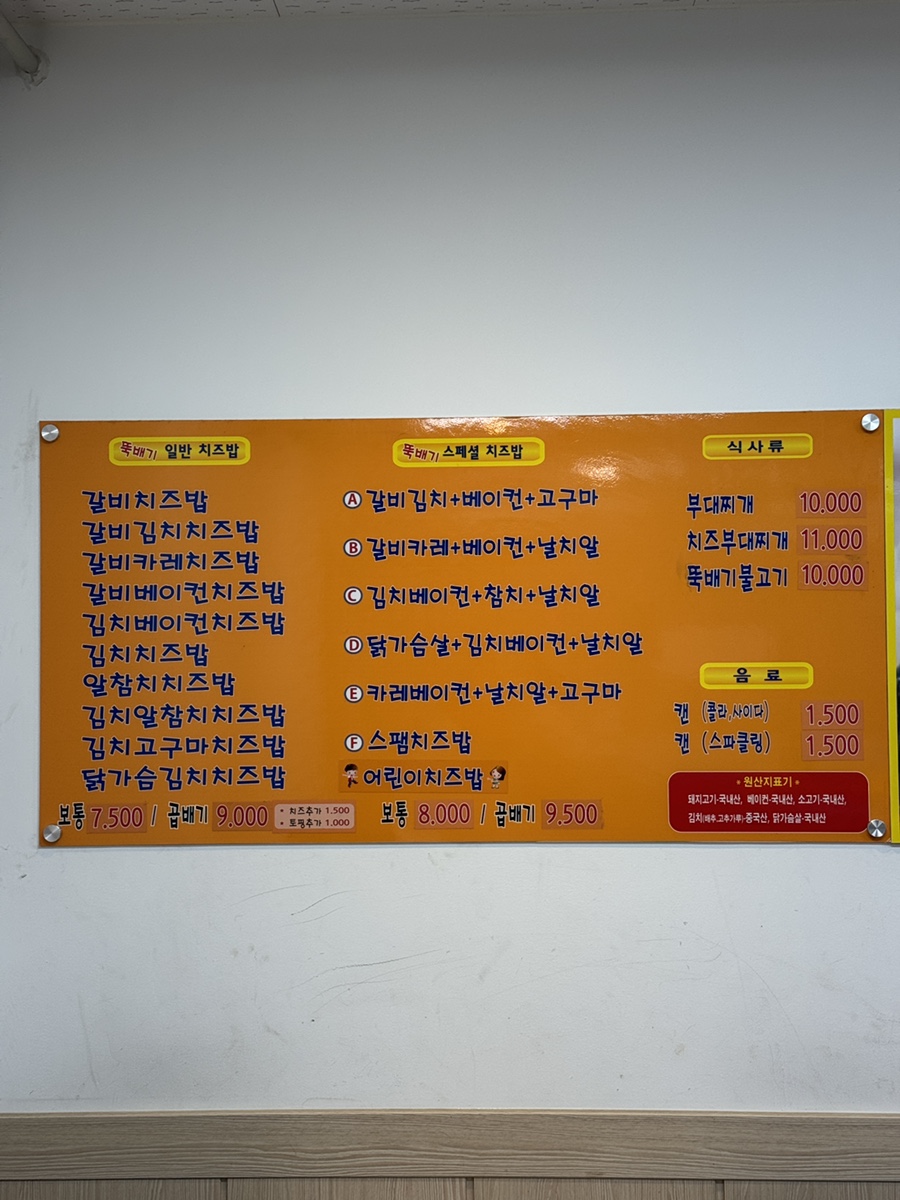 뚝배기 일반 치즈밥
갈비치즈밥
갈비김치치즈밥
갈비카레치즈밥
갈비베이컨치즈밥
김치베이컨치즈밥
김치치즈밥
알참치치즈밥
김치알참치치즈밥
김치고구마치즈밥
닭가슴김치치즈밥
보통 7.500 / 곱배기 9.000
• 치즈추가 1,500
• 토핑추가 1,000
뚝배기 스페셜 치즈밥
Ⓐ 갈비김치+베이컨+고구마
Ⓑ 갈비카레+베이컨+날치알
Ⓒ 김치베이컨+참치+날치알
Ⓓ 닭가슴살+김치베이컨+날치알
Ⓔ 카레베이컨+날치알+고구마
Ⓕ 스팸치즈밥
어린이치즈밥
보통 8.000 / 곱배기 9.500
식사류
부대찌개 10.000
치즈부대찌개 11.000
뚝배기불고기 10.000
음료
캔 (콜라,사이다) 1.500
캔 (스파클링) 1.500
• 원산지표기 •
돼지고기-국내산, 베이컨-국내산, 소고기-국내산,
김치(배추,고추가루)-중국산, 닭가슴살-국내산